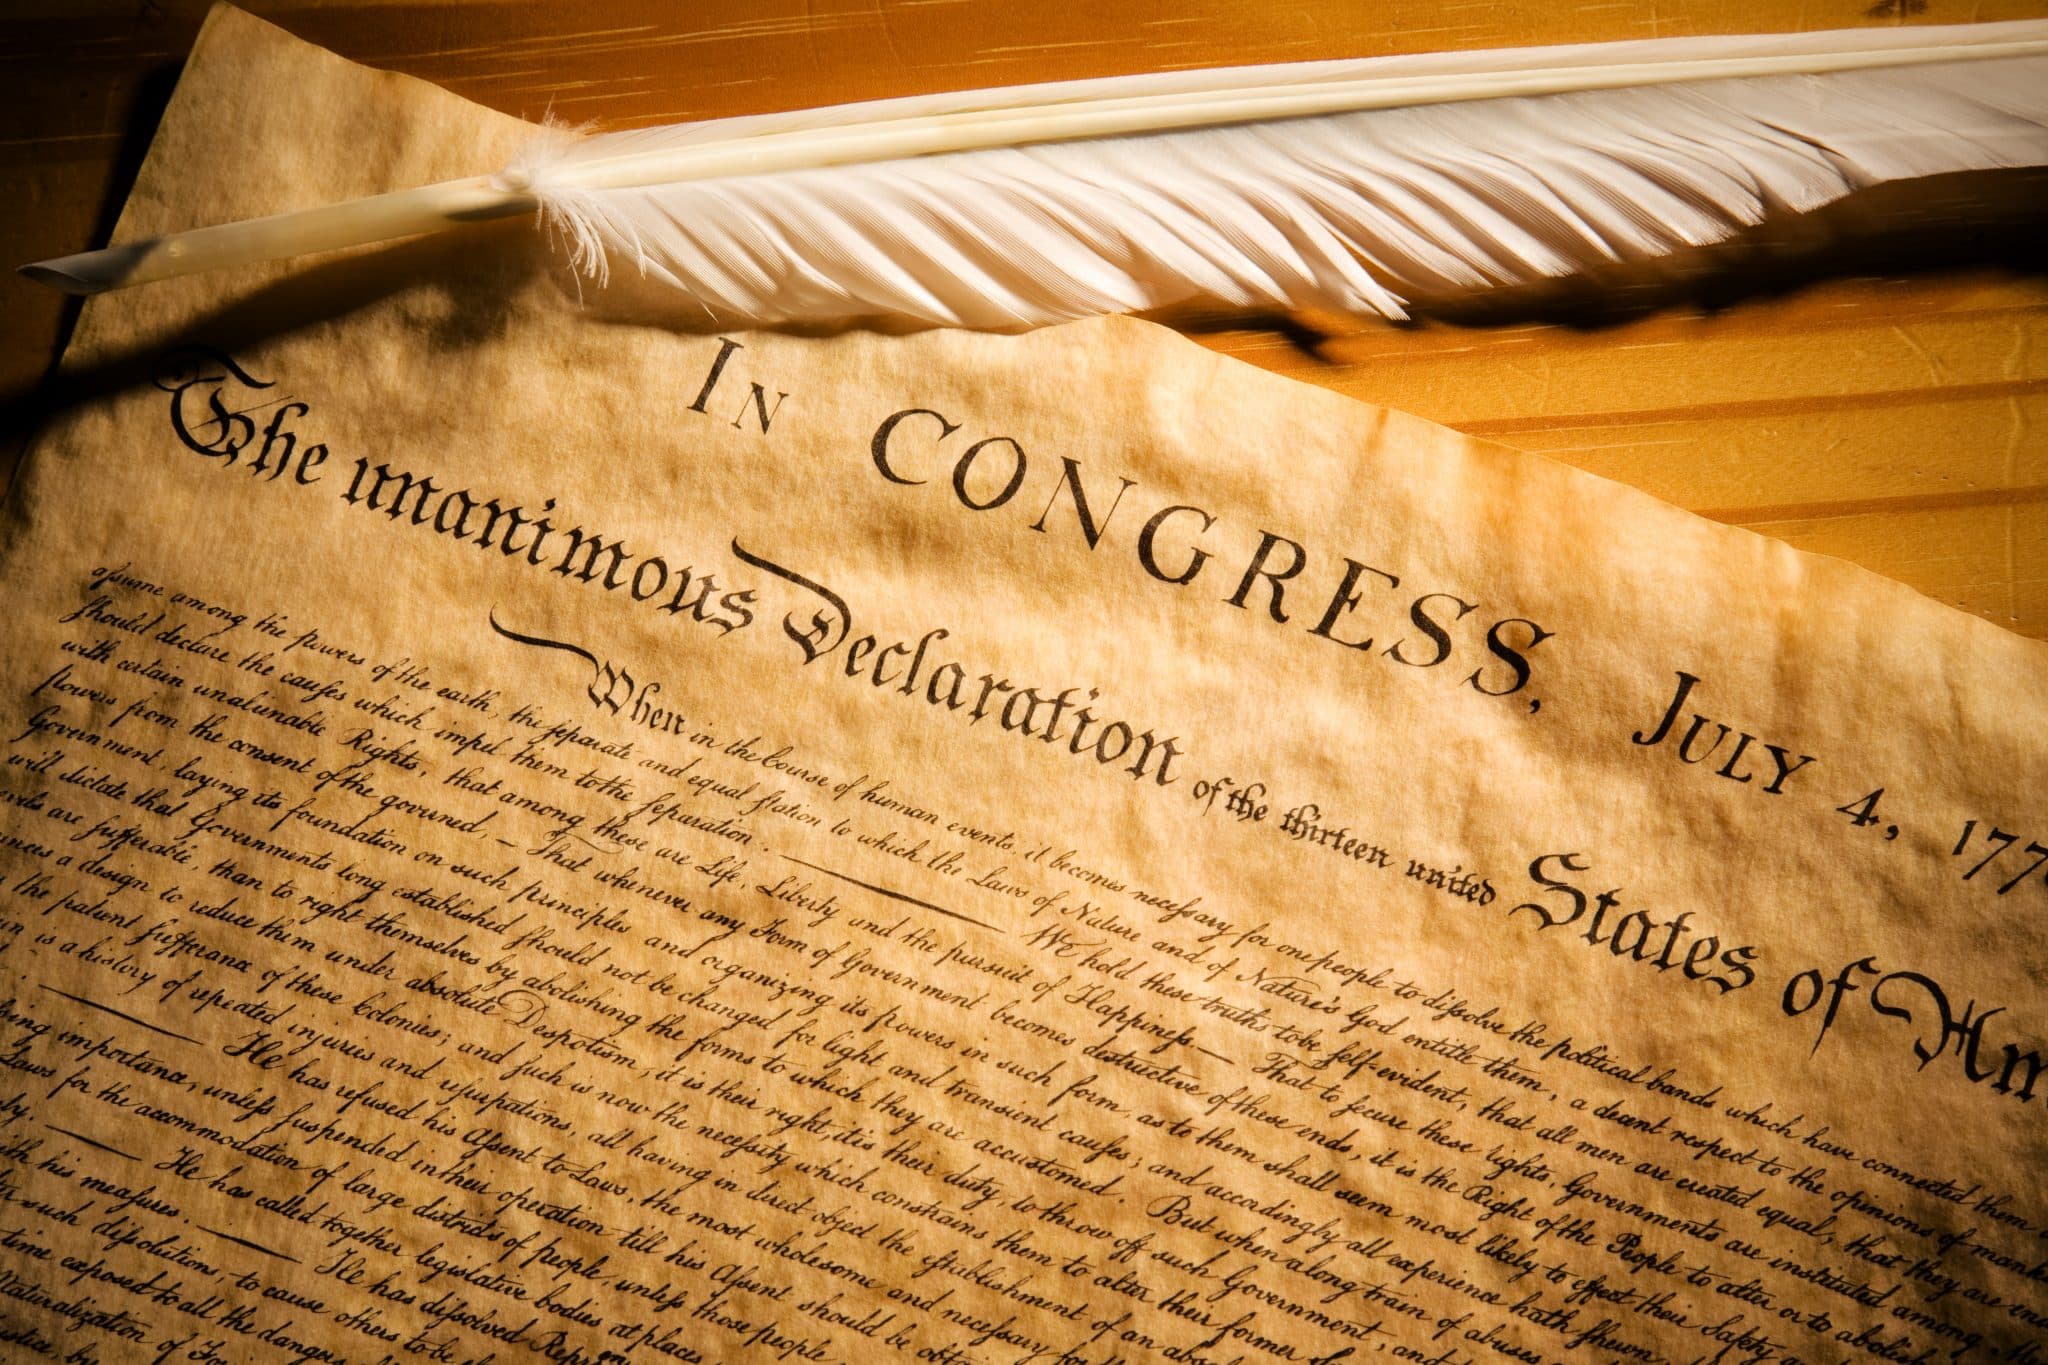 In CONGRESS, July 4, 177
The unanimous Declaration of the thirteen united States of Am
When in the Course of human events, it becomes necessary for one people to dissolve the political bands which have connected them
assume among the powers of the earth, the separate and equal station to which the Laws of Nature and of Nature's God entitle them, a decent respect to the opinions of mank
should declare the causes which impel them to the separation. — We hold these truths to be self-evident, that all men are created equal, that they are en
with certain unalienable Rights, that among these are Life, Liberty and the pursuit of Happiness. — That to secure these rights, Governments are instituted among
powers from the consent of the governed, — That whenever any Form of Government becomes destructive of these ends, it is the Right of the People to alter or to abolish
Government, laying its foundation on such principles and organizing its powers in such form, as to them shall seem most likely to effect their Safety
will dictate that Governments long established should not be changed for light and transient causes; and accordingly all experience hath shewn
are sufferable, than to right themselves by abolishing the forms to which they are accustomed. But when a long train of abuses
a design to reduce them under absolute Despotism, it is their right, it is their duty, to throw off such Government, and
the patient sufferance of these Colonies; and such is now the necessity which constrains them to alter their former
is a history of repeated injuries and usurpations, all having in direct object the establishment of an abso
— He has refused his Assent to Laws, the most wholesome and necessary for
importance, unless suspended in their operation till his Assent should be
Laws for the accommodation of large districts of people, unless those people
— He has called together legislative bodies at places
his measures. — He has dissolved Repr
such dissolutions, to cause others to be
time exposed to all the dangers
Naturalization of